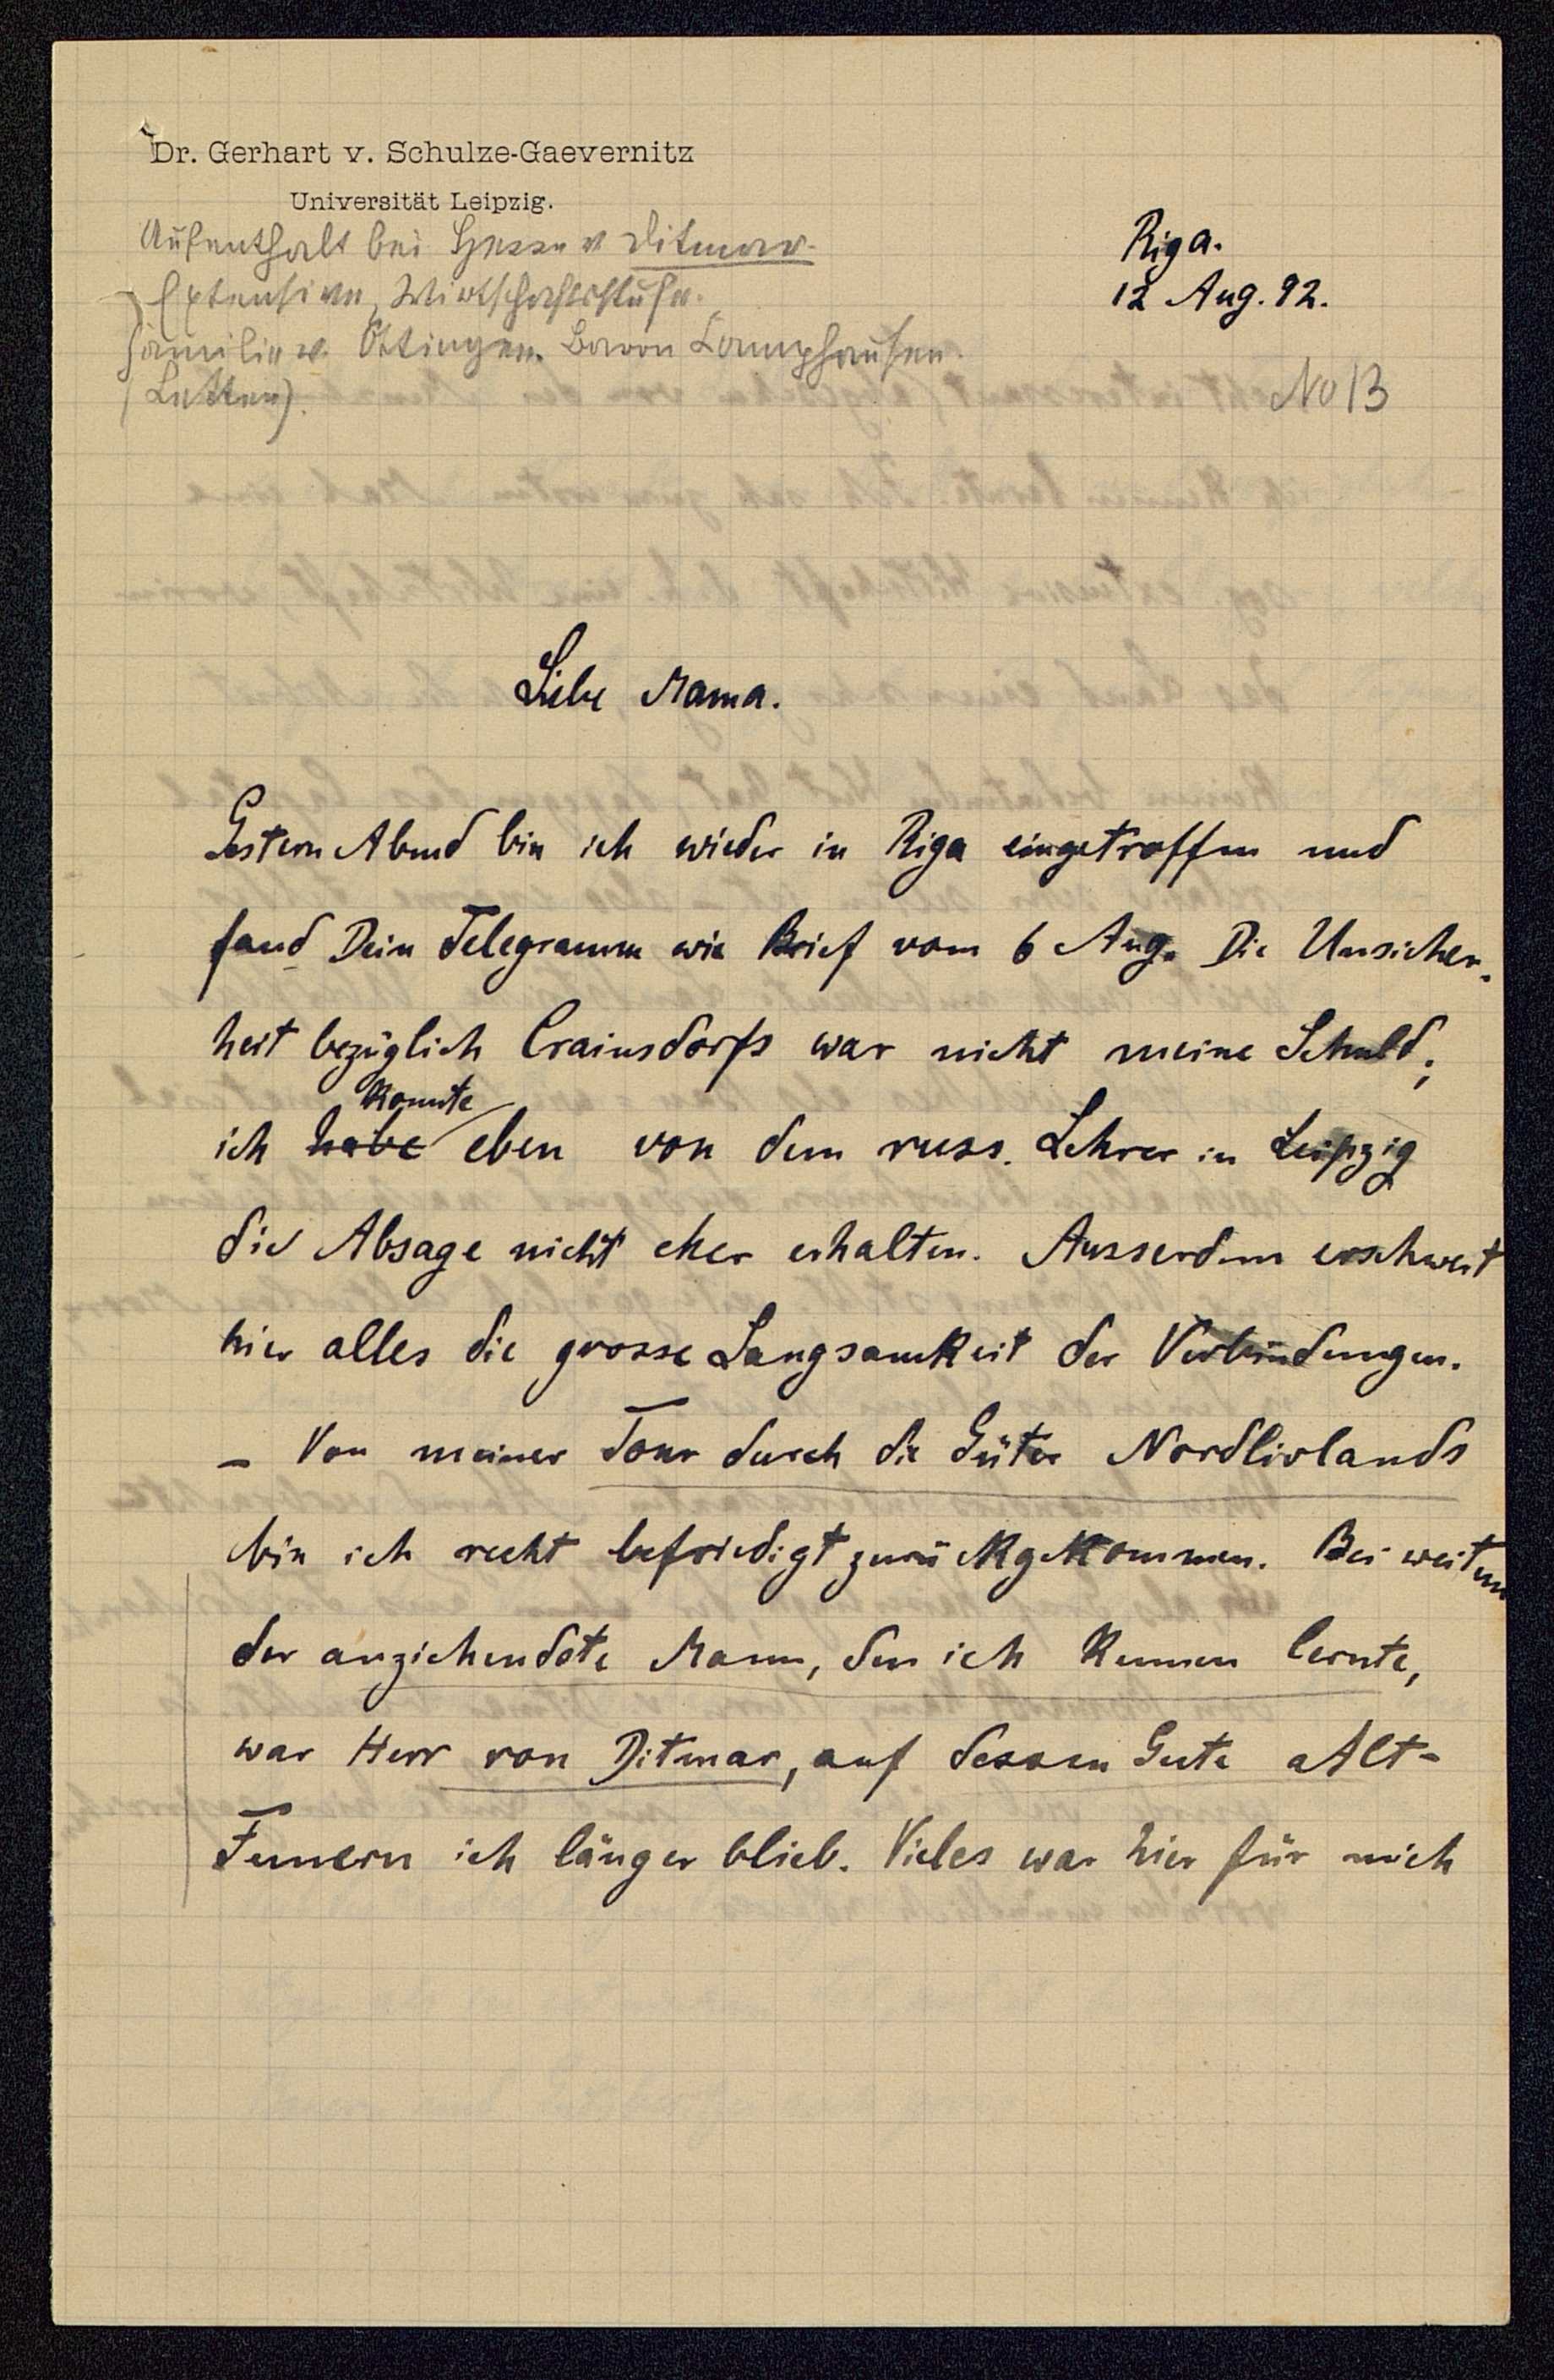 Dr. Gerhart v. Schulze-Gaevernitz
Universität Leipzig.
Aufenthalt bei Herrn v Ditmar.
Extensive Wirtschaftsstufe.
Familie v. Öttingen. Baron Campenhausen.
(Letten).
Riga.
12 Aug. 92.
No 13
Liebe Mama.
Gestern Abend bin ich wieder in Riga eingetroffen und
fand Dein Telegramm wie Brief vom 6 Aug. Die Unsicher-
heit bezüglich Crainsdorfs war nicht meine Schuld;
konnte
ich habe eben von dem russ. Lehrer in Leipzig
die Absage nicht eher erhalten. Ausserdem erschwert
hier alles die grosse Langsamkeit der Verbindungen.
– Von meiner Tour durch die Güter Nordlivlands
bin ich recht befriedigt zurückgekommen. Bei weitem
der anziehendste Mann, den ich kennen lernte,
war Herr von Ditmar, auf dessen Gute Alt-
Fennern ich länger blieb. Vieles war hier für mich